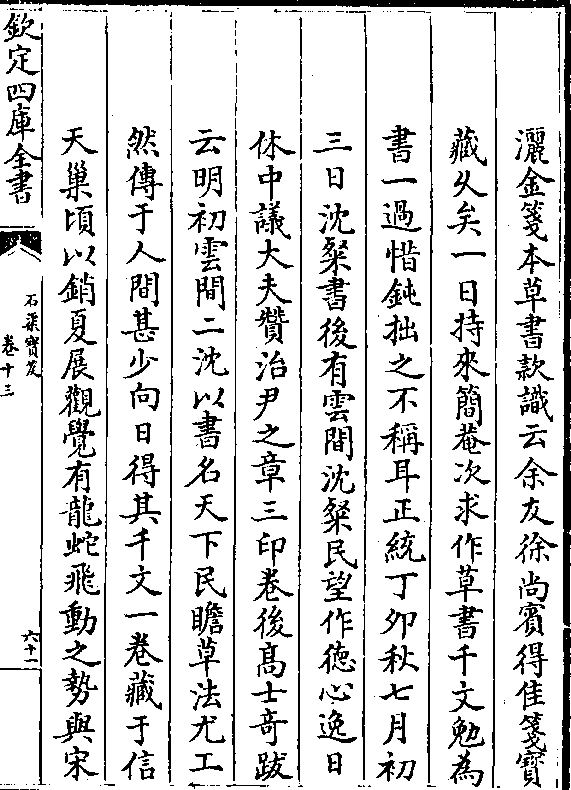 灑金箋本草書款識云余友徐尚賓得佳箋寶
藏乆矣一日持來簡菴次求作草書千文勉為
書一過惜鈍拙之不稱耳正統丁夘秋七月初
三日沈粲書後有雲間沈粲民望作徳心逸日
休中議大夫贊治尹之章三印卷後髙士竒跋
云明初雲間二沈以書名天下民瞻草法尤工
然傳于人間甚少向日得其千文一卷藏于信
天巢頃以銷夏展觀覺有龍蛇飛動之勢與宋
欽定四庫全書
石渠寶笈
卷十三
六十一